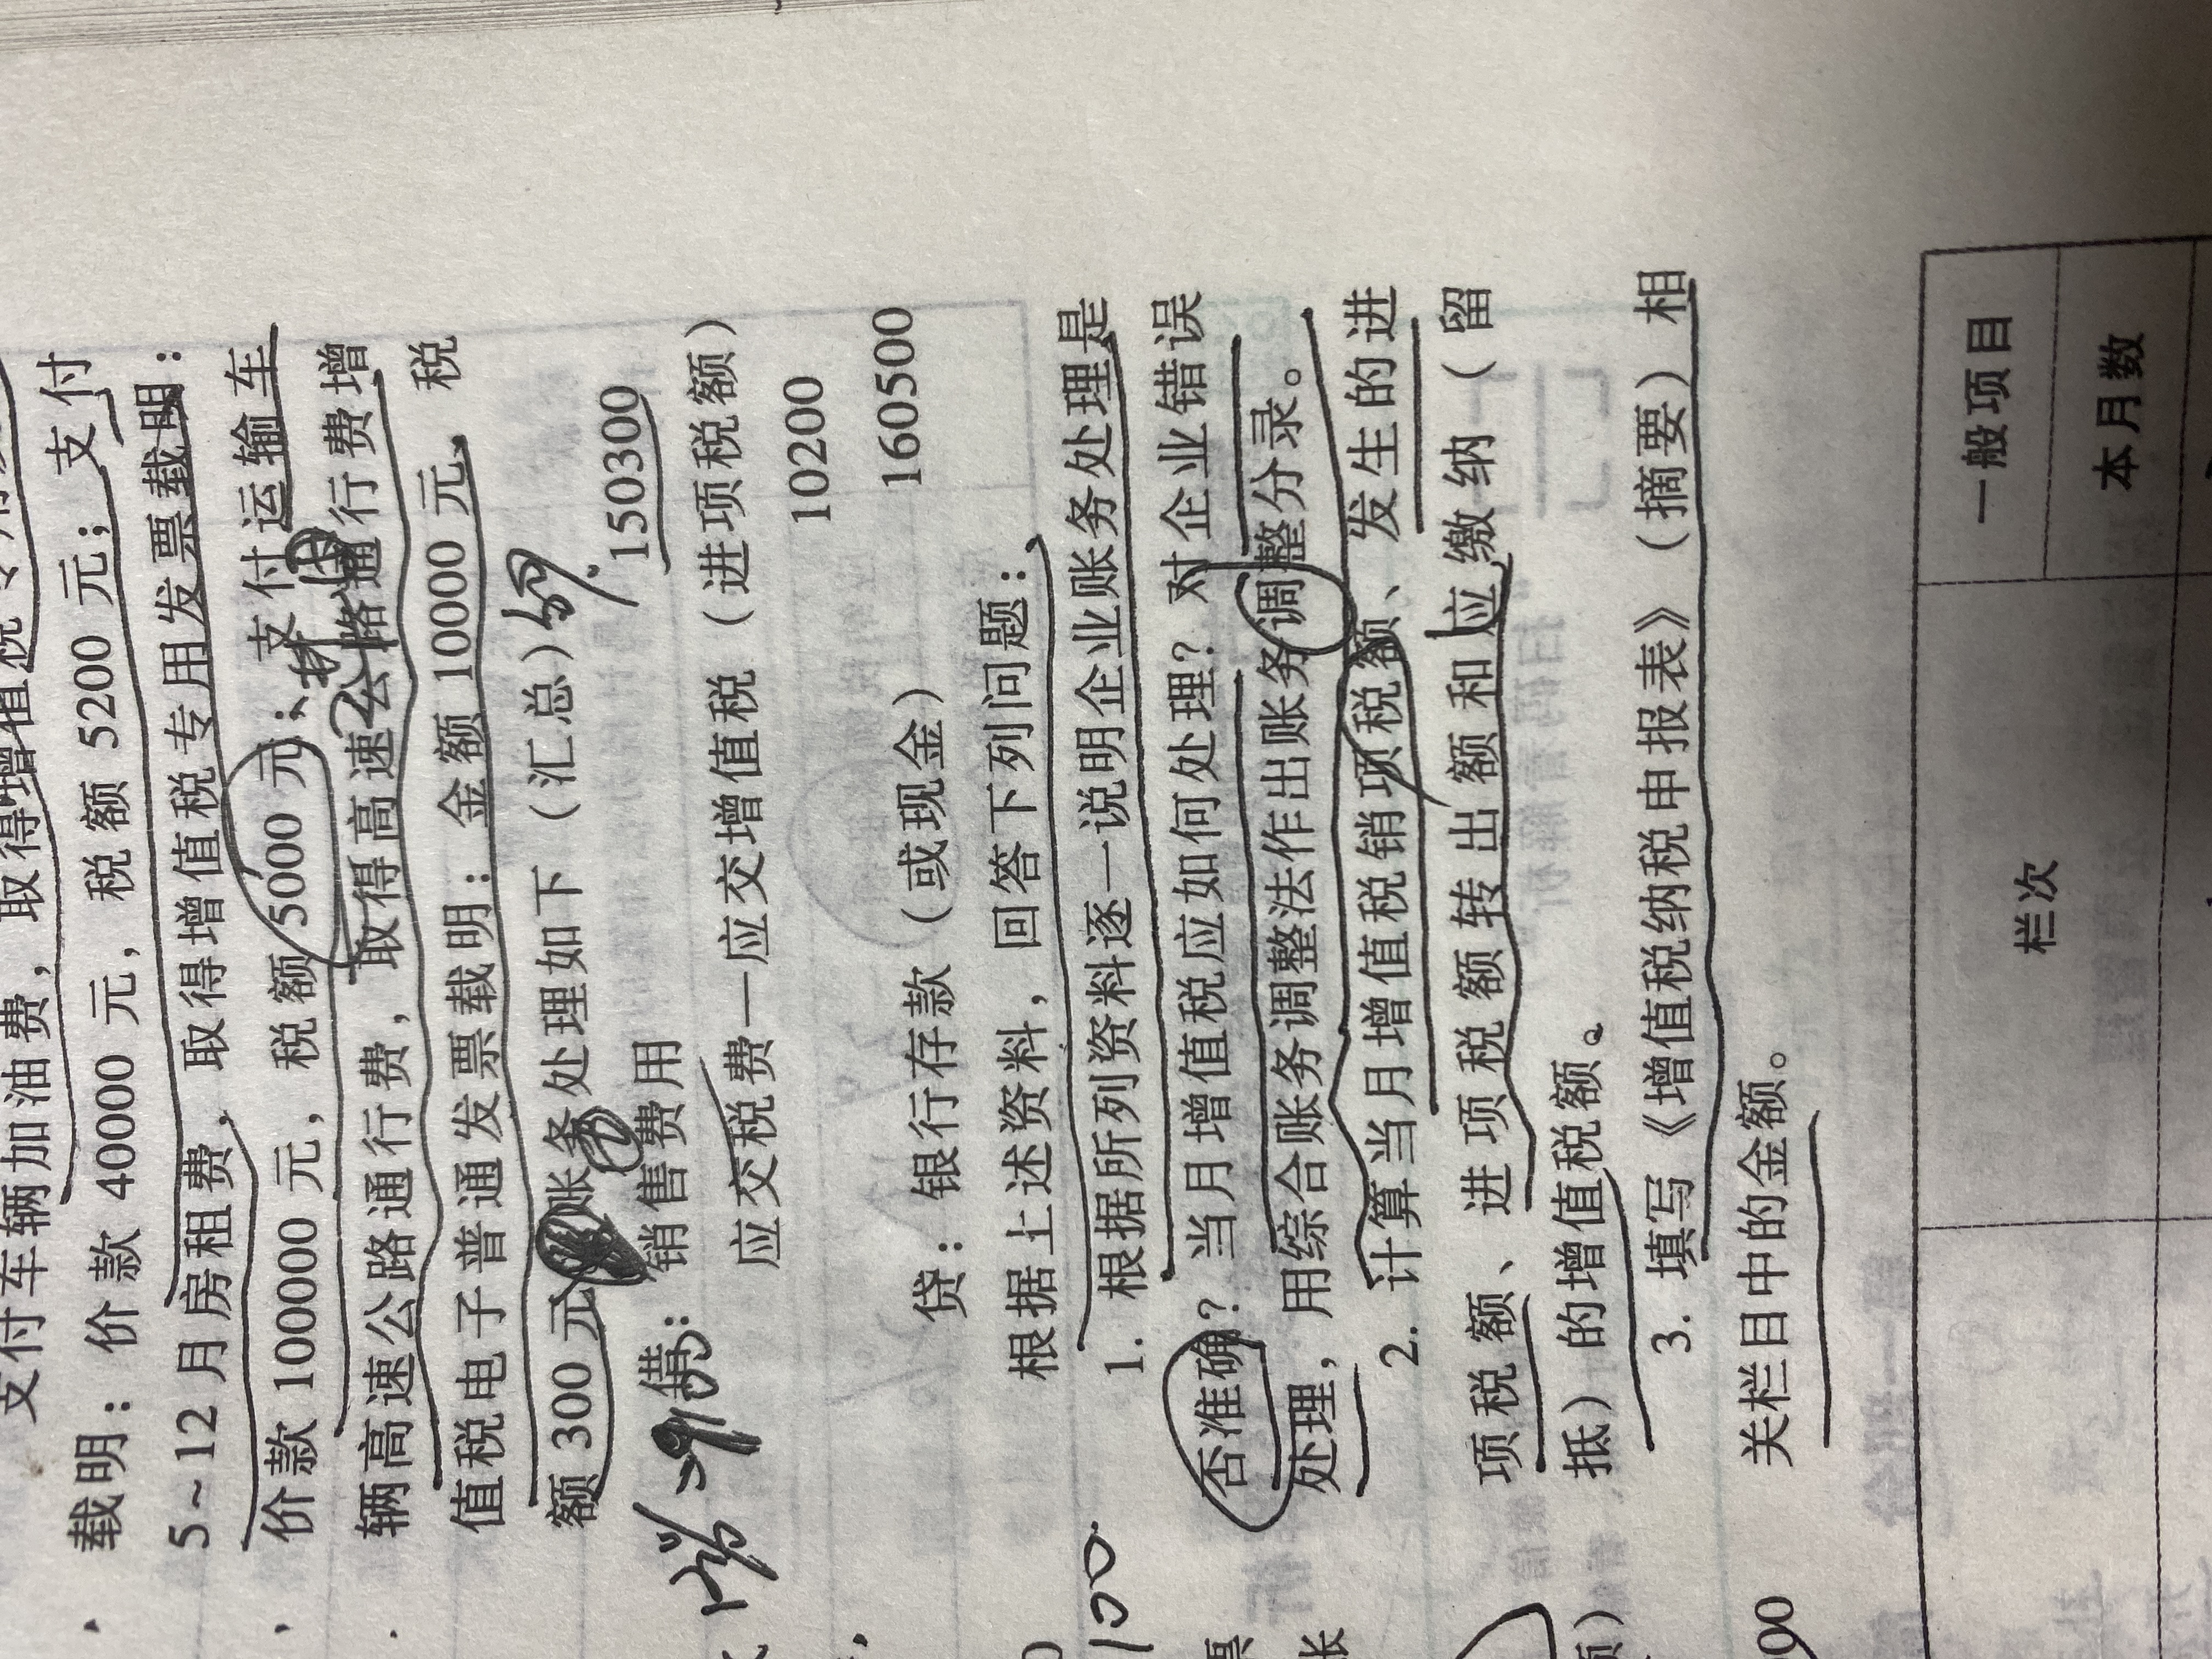 支付车辆加油费，取得增值税专用
载明：价款 40000 元，税额 5200 元；支付
5~12 月房租费，取得增值税专用发票载明：
价款 100000 元，税额 5000 元；支付运输车
辆高速公路通行费，取得高速公路通行费增
值税电子普通发票载明：金额 10000 元、税
额 300 元。账务处理如下（汇总）
借：销售费用 150300
应交税费—应交增值税（进项税额）
10200
贷：银行存款（或现金） 160500
根据上述资料，回答下列问题：
1. 根据所列资料逐一说明企业账务处理是
否准确？当月增值税应如何处理？对企业错误
处理，用综合账务调整法作出账务调整分录。
2. 计算当月增值税销项税额、发生的进
项税额、进项税额转出额和应缴纳（留
抵）的增值税额。
3. 填写《增值税纳税申报表》（摘要）相
关栏目中的金额。
100
栏次 一般项目
本月数